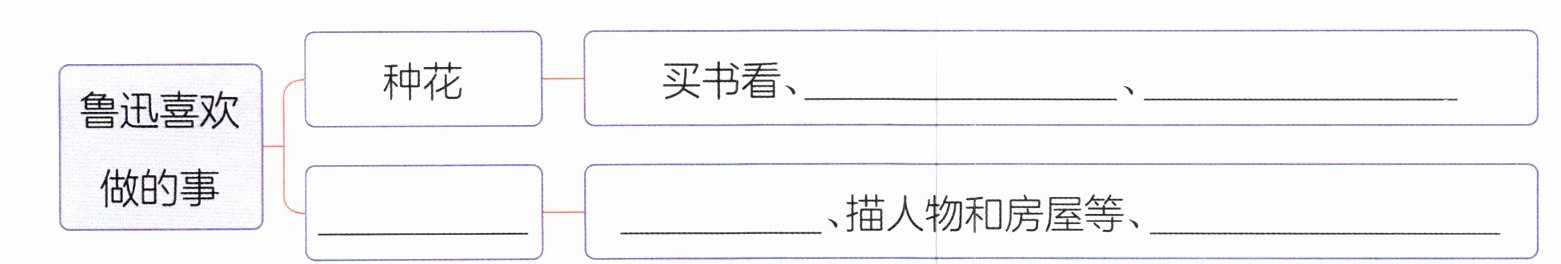 鲁迅喜欢
做的事
种花
买书看、________________、________________
___________
__________、描人物和房屋等、__________________